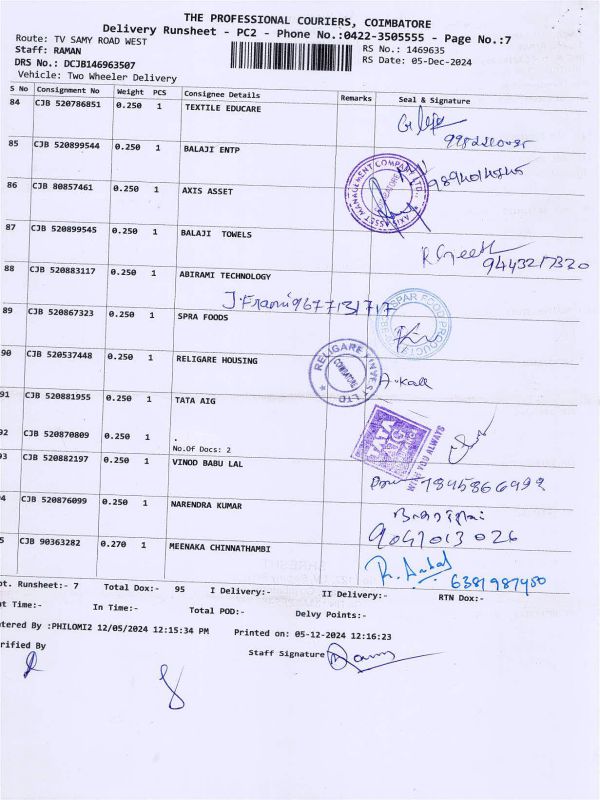 THE PROFESSIONAL COURIERS, COIMBATORE
Delivery Runsheet - PC2 - Phone No.:0422-3505555 - Page No.:7
Route: TV SAMY ROAD WEST
RS No.: 1469635
Staff: RAMAN
RS Date: 05-Dec-2024
DRS No.: DCJB146963507
Vehicle: Two Wheeler Delivery
S No Consignment No Weight PCS Consignee Details Remarks Seal & Signature
84 CJB 520786851 0.250 1 TEXTILE EDUCARE
85 CJB 520899544 0.250 1 BALAJI ENTP
86 CJB 80857461 0.250 1 AXIS ASSET
AXIS ASSET MANAGEMENT COMPANY LTD.
87 CJB 520899545 0.250 1 BALAJI TOWELS
9443217320
88 CJB 520883117 0.250 1 ABIRAMI TECHNOLOGY
9677131717
89 CJB 520867323 0.250 1 SPRA FOODS
SPAR FOOD PRODUCTS
90 CJB 520537448 0.250 1 RELIGARE HOUSING
RELIGARE INVEST LTD
COIMBATORE
91 CJB 520881955 0.250 1 TATA AIG
TATA AIG
WITH YOU ALWAYS
92 CJB 520870809 0.250 1 .
No.Of Docs: 2
93 CJB 520882197 0.250 1 VINOD BABU LAL
4 CJB 520876099 0.250 1 NARENDRA KUMAR
9041013026
5 CJB 90363282 0.270 1 MEENAKA CHINNATHAMBI
6381987450
pt. Runsheet:- 7 Total Dox:- 95 I Delivery:- II Delivery:- RTN Dox:-
ut Time:- In Time:- Total POD:- Delvy Points:-
ntered By :PHILOMI2 12/05/2024 12:15:34 PM Printed on: 05-12-2024 12:16:23
rified By Staff Signature